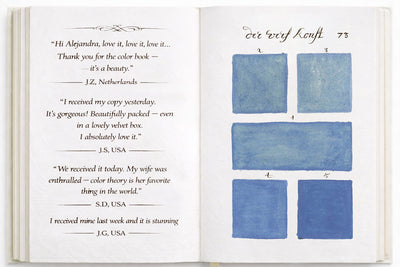 “Hi Alejandra, love it, love it, love it...
Thank you for the color book —
it’s a beauty.”
J.Z, Netherlands
“I received my copy yesterday.
It’s gorgeous! Beautifully packed — even
in a lovely velvet box.
I absolutely love it.”
J.S, USA
“We received it today. My wife was
enthralled — color theory is her favorite
thing in the world.”
S.D, USA
I received mine last week and it is stunning
J.G, USA
der verf Konst 73
2 3
1
4 5